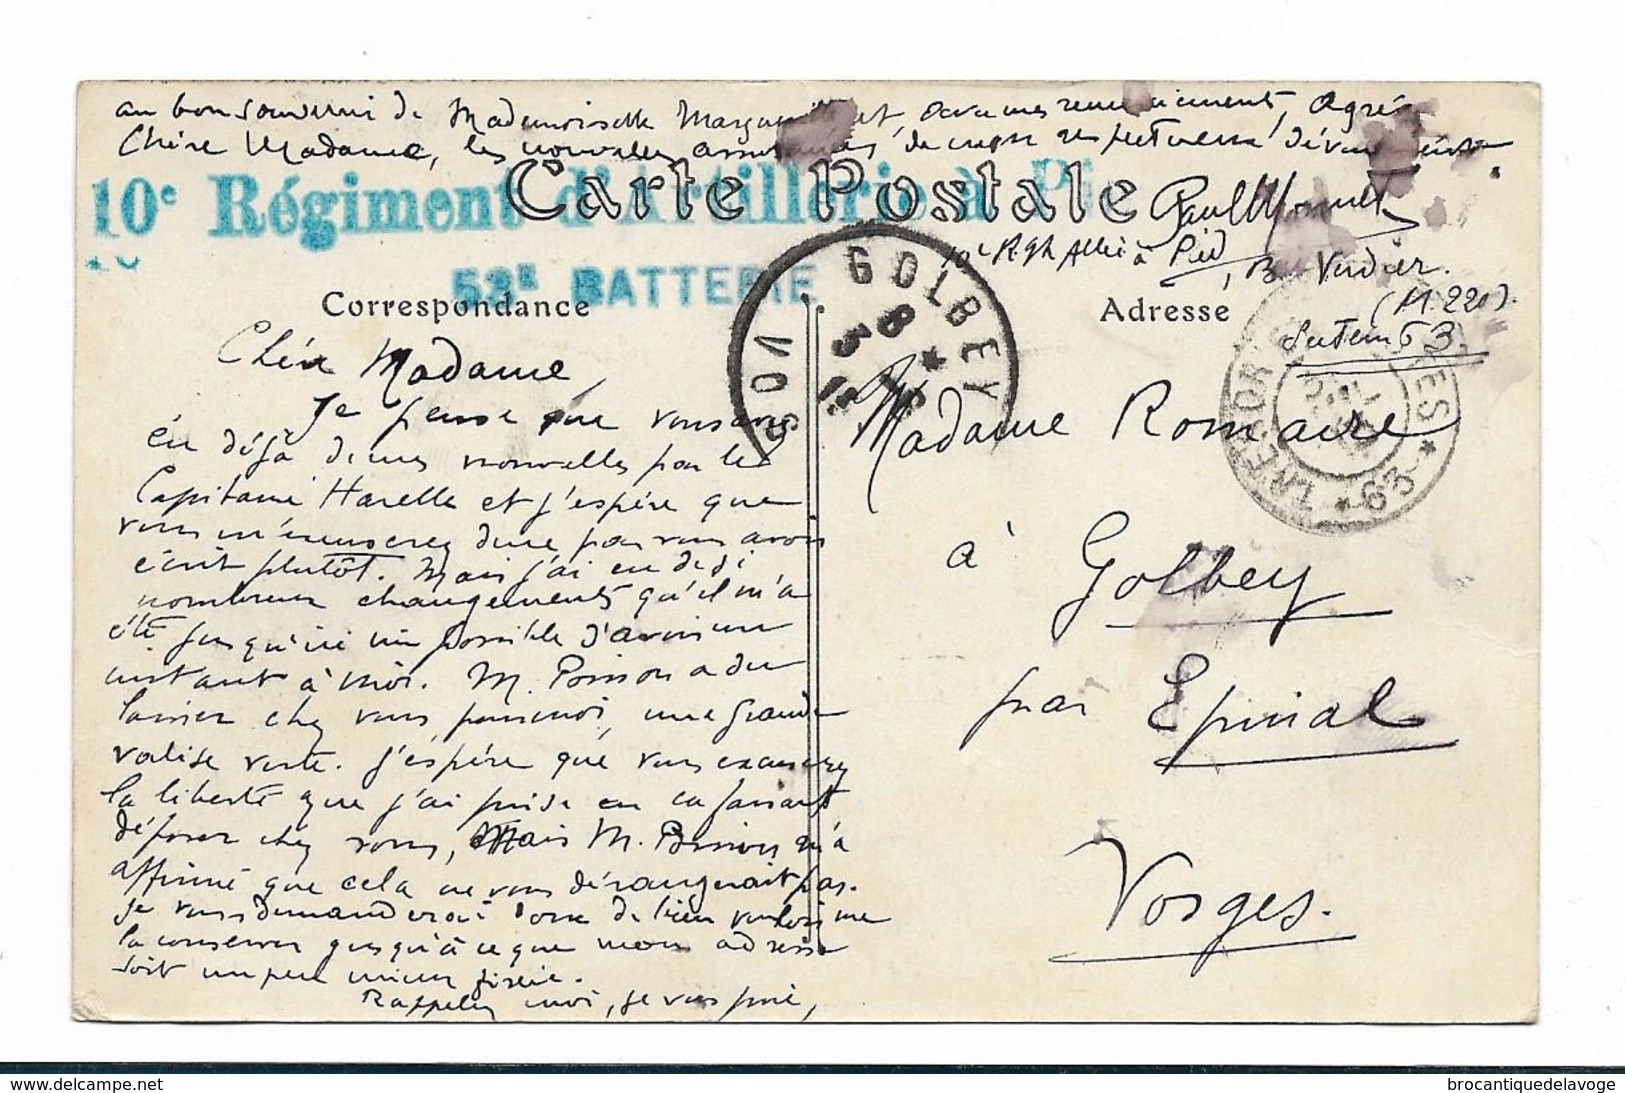 au bon souvenir de Mademoiselle et, avec mes remerciements, Agréez
Chère Madame, les nouvelles assurances de mon respectueux dévouement
Carte Postale
10e Régiment d'Artillerie à Pi
Paul
10e Rgt Artie à Pied, B. Verdier.
(M. 220).
Secteur 53.
53e BATTERIE
GOLBEY
VOSGES
8 * 3
Correspondance
Adresse
Chère Madame,
Je pense que vous avez
eu déjà de mes nouvelles par le
Capitaine Harelle et j'espère que
vous m'excuserez donc pas vous avoir
écrit plutôt. Mais j'ai eu de si
nombreux changements qu'il m'a
été jusqu'ici impossible d'avoir un
instant à moi. M. Poisson a du
laisser chez vous pour moi, une grande
valise verte. J'espère que vous excuserez
la liberté que j'ai prise en la faisant
déposer chez vous, Mais M. Poisson m'a
affirmé que cela ne vous dérangerait pas.
Je vous demanderai donc de bien vouloir me
la conserver jusqu'à ce que mon adresse
soit un peu mieux fixée.
Rappelez moi, je vous prie,
Madame Romaire
à Golbey
par Epinal
Vosges.
* 63 *
delcampe.net
brocantiquedelavoge